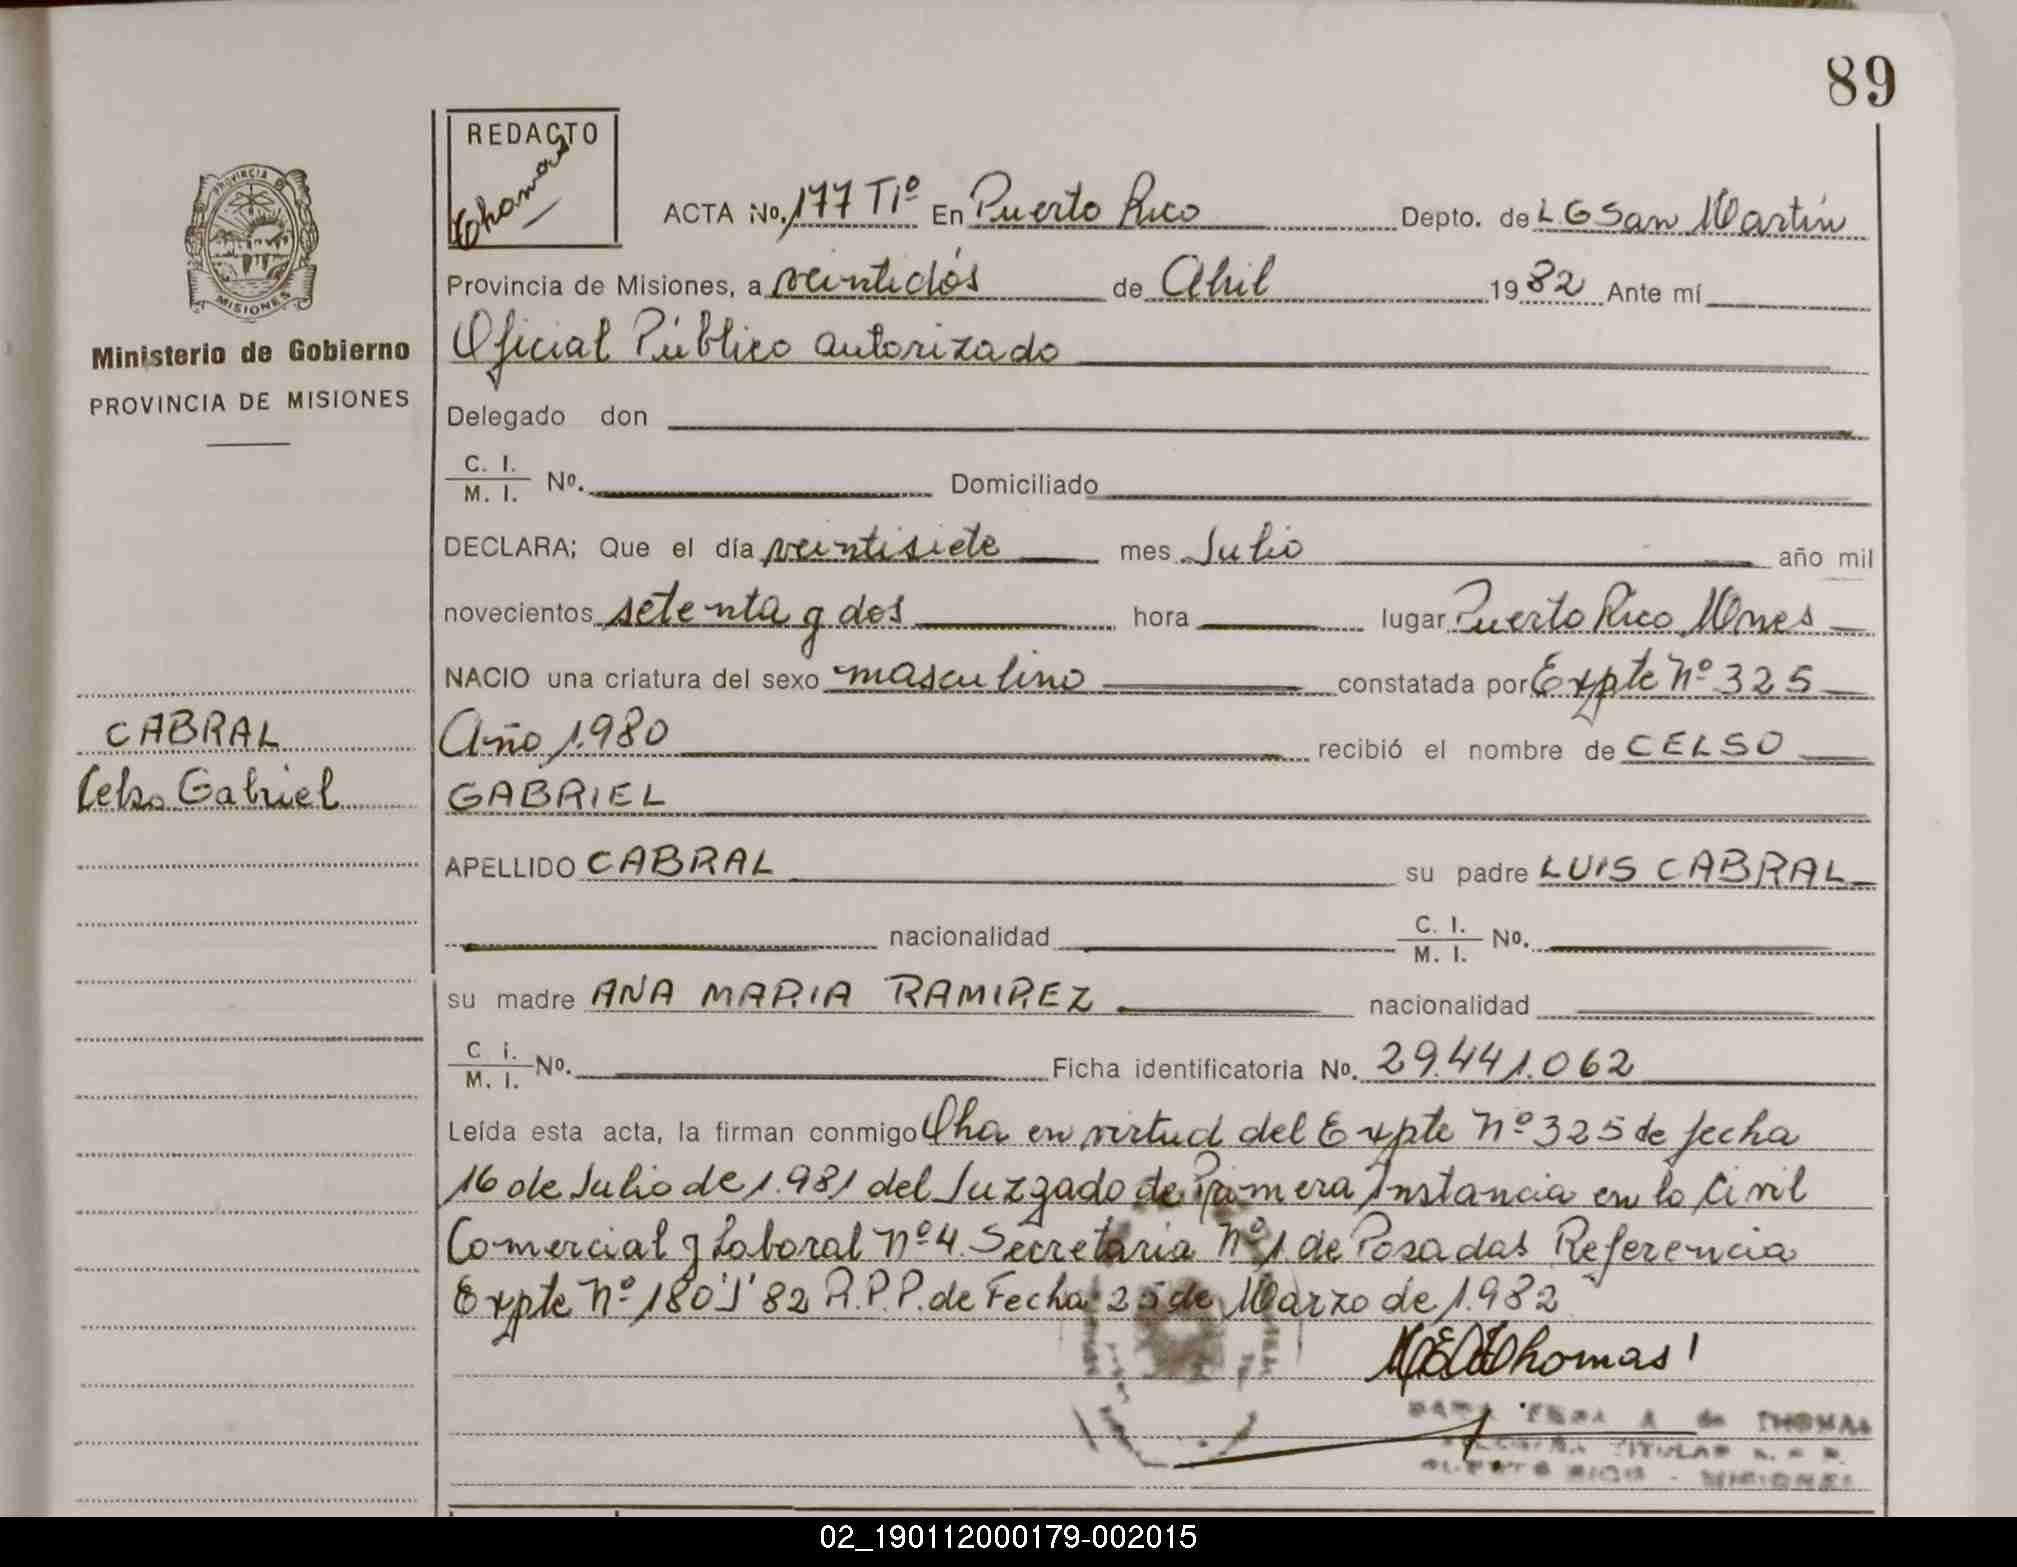 89
REDACTO
Thomas
PROVINCIA DE
MISIONES
Ministerio de Gobierno
PROVINCIA DE MISIONES
CABRAL
Celso Gabriel
ACTA No. 177 Tº En Puerto Rico Depto. de L G San Martín
Provincia de Misiones, a veintidós de Abril 1982 Ante mí
Oficial Público autorizado
Delegado don
C. I.
M. I. No. Domiciliado
DECLARA; Que el día veintisiete mes Julio año mil
novecientos setenta y dos hora lugar Puerto Rico Mnes
NACIO una criatura del sexo masculino constatada por Expte Nº 325
Año 1.980 recibió el nombre de CELSO
GABRIEL
APELLIDO CABRAL su padre LUIS CABRAL
nacionalidad C. I.
M. I. No.
su madre ANA MARIA RAMIREZ nacionalidad
C i.
M. I. No. Ficha identificatoria No. 29.441.062
Leída esta acta, la firman conmigo en virtud del Expte Nº 325 de fecha
16 de Julio de 1.981 del Juzgado de Primera Instancia en lo Civil
Comercial y Laboral Nº 4 Secretaria Nº 1 de Posadas Referencia
Expte Nº 180 'J' 82 R.P.P. de Fecha 25 de Marzo de 1.982
Thomas
A de THOMAS
TITULAR
PUERTO RICO - MISIONES
02_190112000179-002015